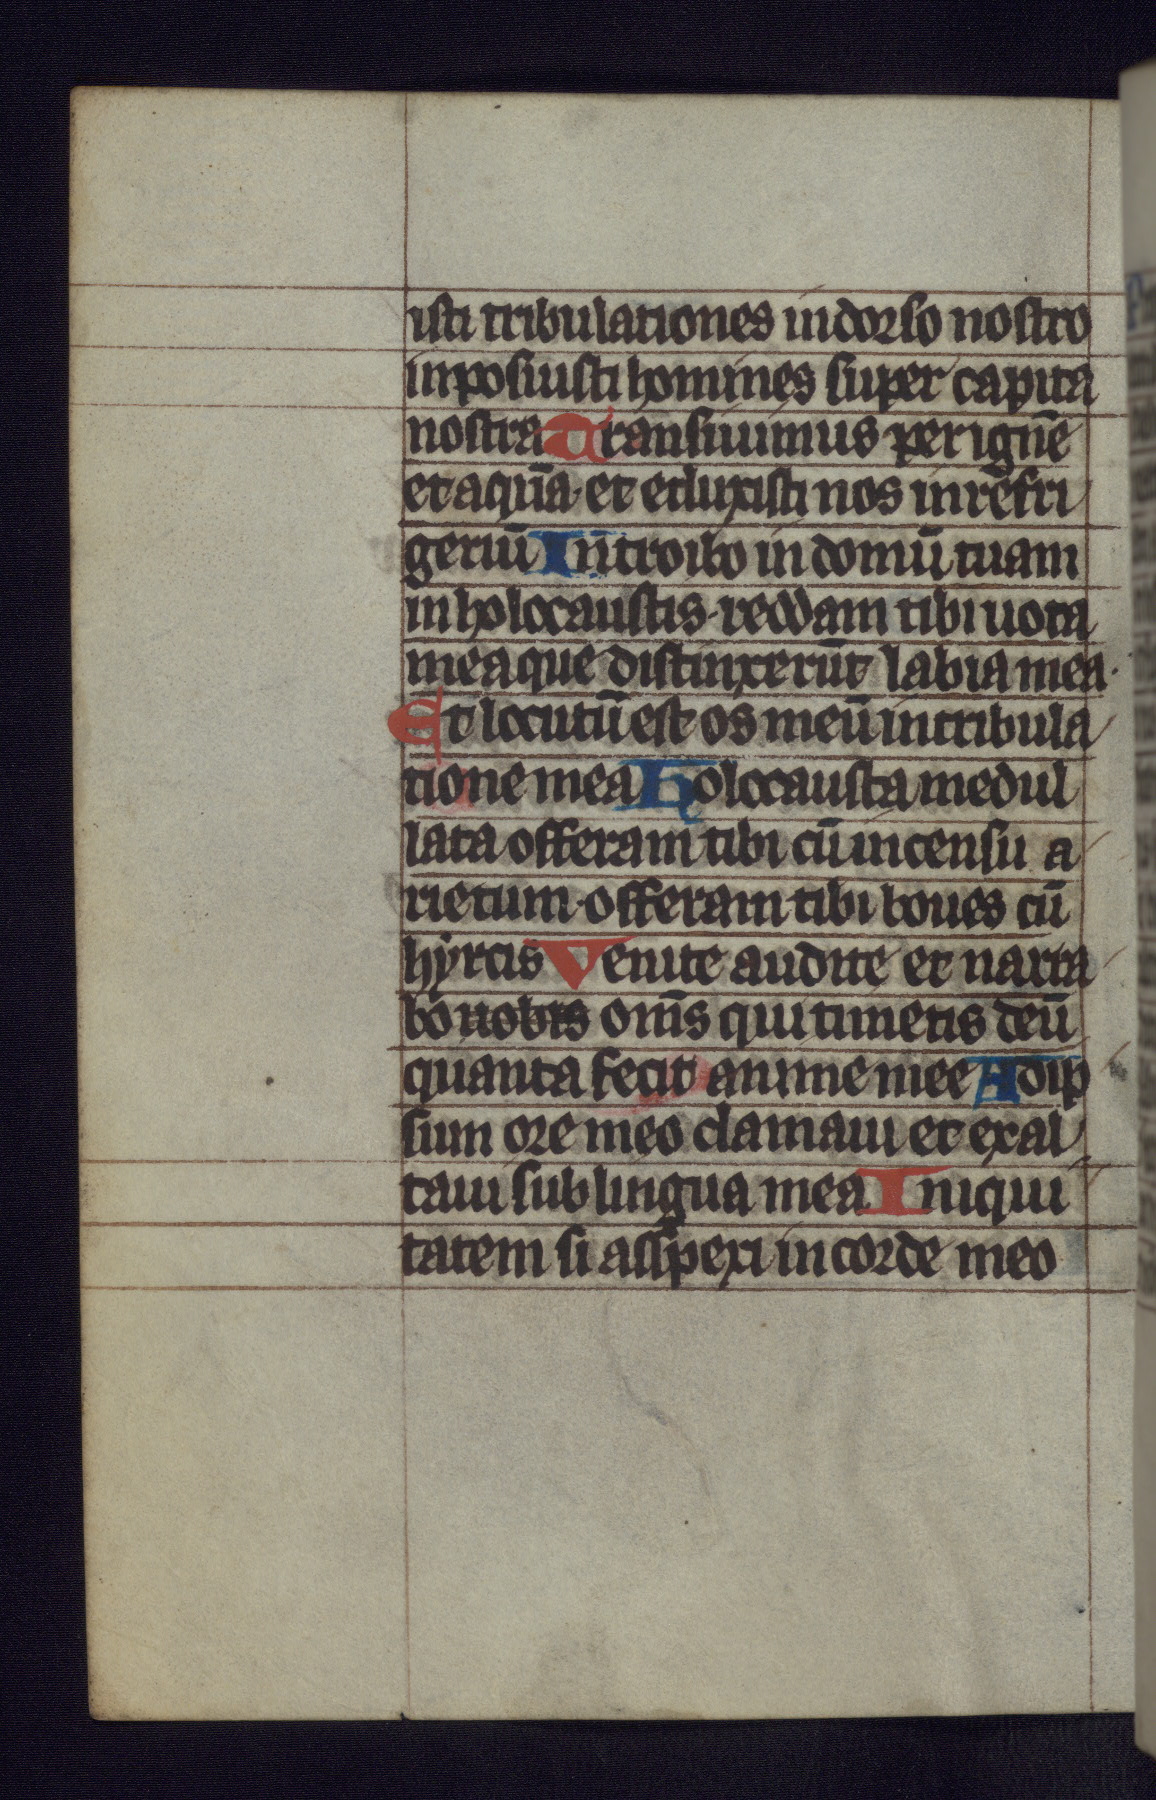 isti tribulationes in dorso nostro
inposuisti homines super capita
nostra Transiuimus per ignē
et aquā· et eduxisti nos in refri
geriū Introibo in domū tuam
in holocaustis· reddam tibi uota
mea que distinxerūt labia mea·
Et locutū est os meū in tribula
tione mea Holocausta medul
lata offeram tibi cū incensu a
rietum· offeram tibi boues cū
hyrcis Venite audite et narra
bo uobis om̄s qui timetis deū
quanta fecit anime mee Ad ip
sum ore meo clamaui et exal
taui sub lingua mea Iniqui
tatem si asspexi in corde meo